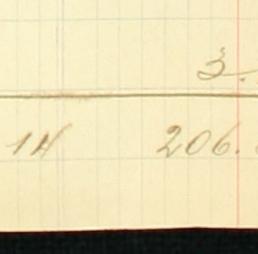 3.
14 206.